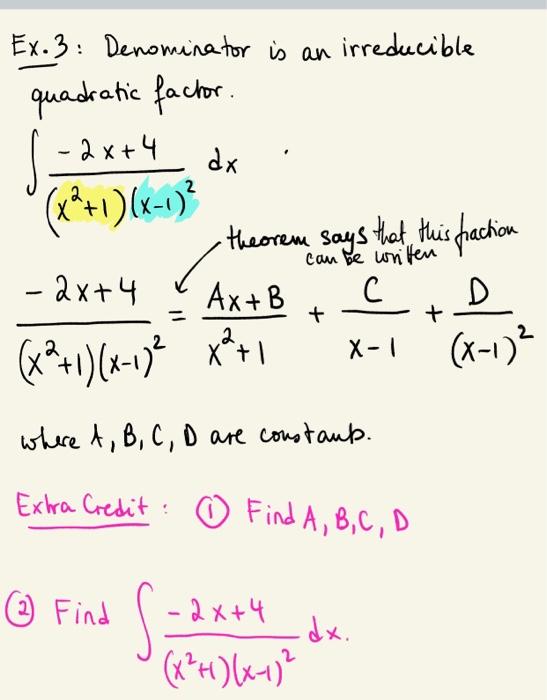 Ex.3: Denominator is an irreducible
quadratic factor.
∫ (-2x+4)/((x²+1)(x-1)²) dx .
theorem says that this fraction
can be written
(-2x+4)/((x²+1)(x-1)²) = (Ax+B)/(x²+1) + C/(x-1) + D/(x-1)²
where A, B, C, D are constants.
Extra Credit: ① Find A, B, C, D
② Find ∫ (-2x+4)/((x²+1)(x-1)²) dx.